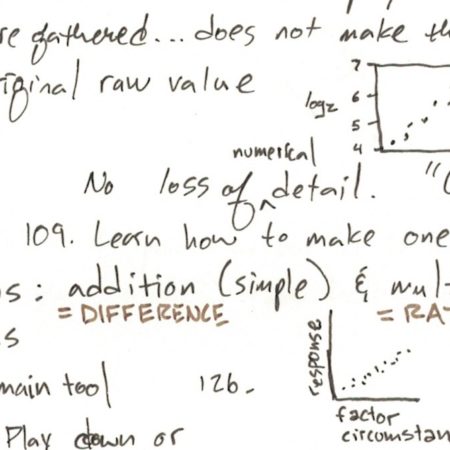 re gathered... does not make th
riginal raw value
log2
7
6
5
4
numerical
No loss of ^ detail.
"(
109. Learn how to make one
s: addition (simple) & mul-
= DIFFERENCE = RA
s
main tool 126.
response
factor
circumstan
Play down or